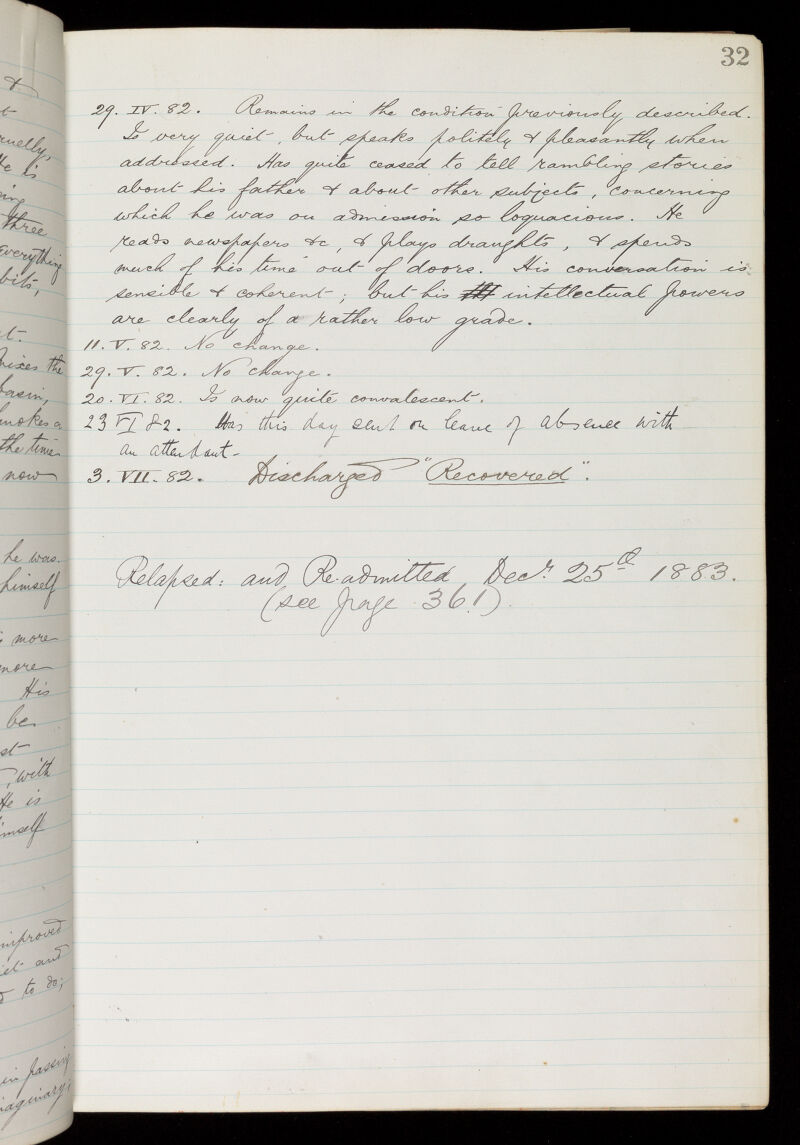 32
29. IV. 82. Remains in the condition previously described.
Is very quiet, but speaks politely & pleasantly when
addressed. Has quite ceased to tell rambling stories
about his father & about other subjects, concerning
which he was on admission so loquacious. He
reads newspapers &c, & plays draughts, & spends
much of his time out of doors. His conversation is
sensible & coherent; but his intellectual powers
are clearly of a rather low grade.
11. V. 82. No change.
29. V. 82. No change.
20. VI. 82. Is now quite convalescent.
23 VI 82. Was this day sent on leave of absence with
an attendant-
3. VII. 82. Discharged "Recovered".
Relapsed: and Re-admitted Decr. 25th 1883.
(see page 361).
&
He is
three
everything
the time
now
he was
himself
more
more
His
be
with
He is
improved
and
to do;
in passing